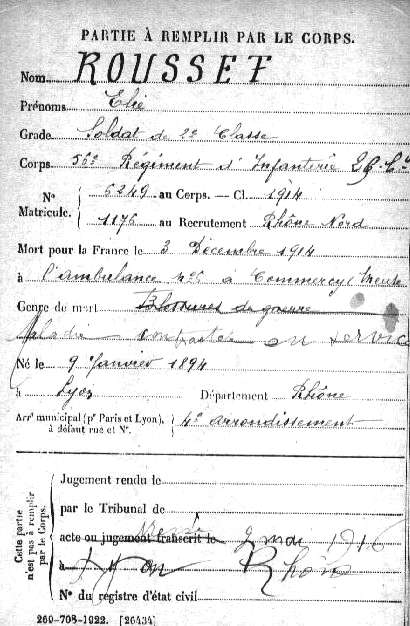 PARTIE À REMPLIR PAR LE CORPS.
Nom ROUSSET
Prénoms Elie
Grade Soldat de 2e Classe
Corps 56e Régiment d'Infanterie 29 Cie
N° Matricule. 6249 au Corps. — Cl. 1914
1176 au Recrutement Rhône Nord
Mort pour la France le 3 Décembre 1914
à l'ambulance à Commercy (Meuse
Genre de mort Blessures de guerre
Maladie contractée en service
Né le 9 Janvier 1894
à Lyon Département Rhône
Arrt municipal (pr Paris et Lyon), à défaut rue et N°. 4e arrondissement
Cette partie n'est pas à remplir par le Corps.
Jugement rendu le
par le Tribunal de
acte ou jugement transcrit le 2 mai 1916
à Lyon Rhône
N° du registre d'état civil
260-708-1922. [26434]